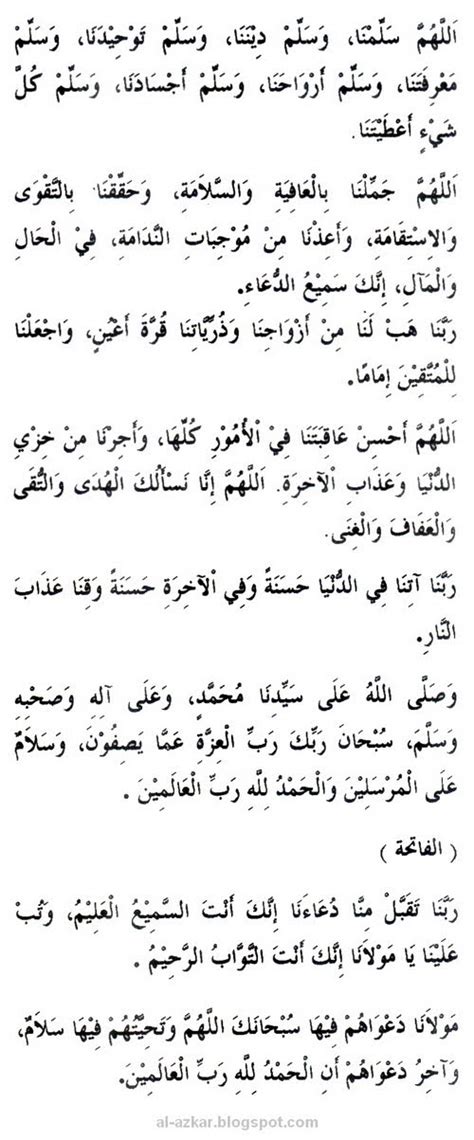 اَللَّهُمَّ سَلِّمْنَا، وَسَلِّمْ دِيْنَنَا، وَسَلِّمْ تَوْحِيْدَنَا، وَسَلِّمْ
مَعْرِفَتَنَا، وَسَلِّمْ أَرْوَاحَنَا، وَسَلِّمْ أَجْسَادَنَا، وَسَلِّمْ كُلَّ
شَيْءٍ أَعْطَيْتَنَا.
اَللَّهُمَّ جَمِّلْنَا بِالْعَافِيَةِ وَالسَّلاَمَةِ، وَحَقِّقْنَا بِالتَّقْوَى
وَالاِسْتِقَامَةِ، وَأَعِذْنَا مِنْ مُوْجِبَاتِ النَّدَامَةِ، فِيْ الْحَالِ
وَالْمَآلِ، إِنَّكَ سَمِيْعُ الدُّعَاءِ.
رَبَّنَا هَبْ لَنَا مِنْ أَزْوَاجِنَا وَذُرِّيَّاتِنَا قُرَّةَ أَعْيُنٍ، وَاجْعَلْنَا
لِلْمُتَّقِيْنَ إِمَامًا.
اَللَّهُمَّ أَحْسِنْ عَاقِبَتَنَا فِيْ الْأُمُوْرِ كُلِّهَا، وَأَجِرْنَا مِنْ خِزْيِ
الدُّنْيَا وَعَذَابِ الْآخِرَةِ. اَللَّهُمَّ إِنَّا نَسْأَلُكَ الْهُدَى وَالتُّقَى
وَالْعَفَافَ وَالْغِنَى.
رَبَّنَا آتِنَا فِي الدُّنْيَا حَسَنَةً وَفِي الْآخِرَةِ حَسَنَةً وَقِنَا عَذَابَ
النَّارِ.
وَصَلَّى اللَّهُ عَلَى سَيِّدِنَا مُحَمَّدٍ، وَعَلَى آلِهِ وَصَحْبِهِ
وَسَلَّمَ، سُبْحَانَ رَبِّكَ رَبِّ الْعِزَّةِ عَمَّا يَصِفُوْنَ، وَسَلاَمٌ
عَلَى الْمُرْسَلِيْنَ وَالْحَمْدُ لِلَّهِ رَبِّ الْعَالَمِيْنَ.
( الفاتحة )
رَبَّنَا تَقَبَّلْ مِنَّا دُعَاءَنَا إِنَّكَ أَنْتَ السَّمِيْعُ الْعَلِيْمُ، وَتُبْ
عَلَيْنَا يَا مَوْلاَنَا إِنَّكَ أَنْتَ التَّوَّابُ الرَّحِيْمُ.
مَوْلاَنَا دَعْوَاهُمْ فِيْهَا سُبْحَانَكَ اللَّهُمَّ وَتَحِيَّتُهُمْ فِيْهَا سَلاَمٌ،
وَآخِرُ دَعْوَاهُمْ أَنِ الْحَمْدُ لِلَّهِ رَبِّ الْعَالَمِيْنَ.
al-azkar.blogspot.com